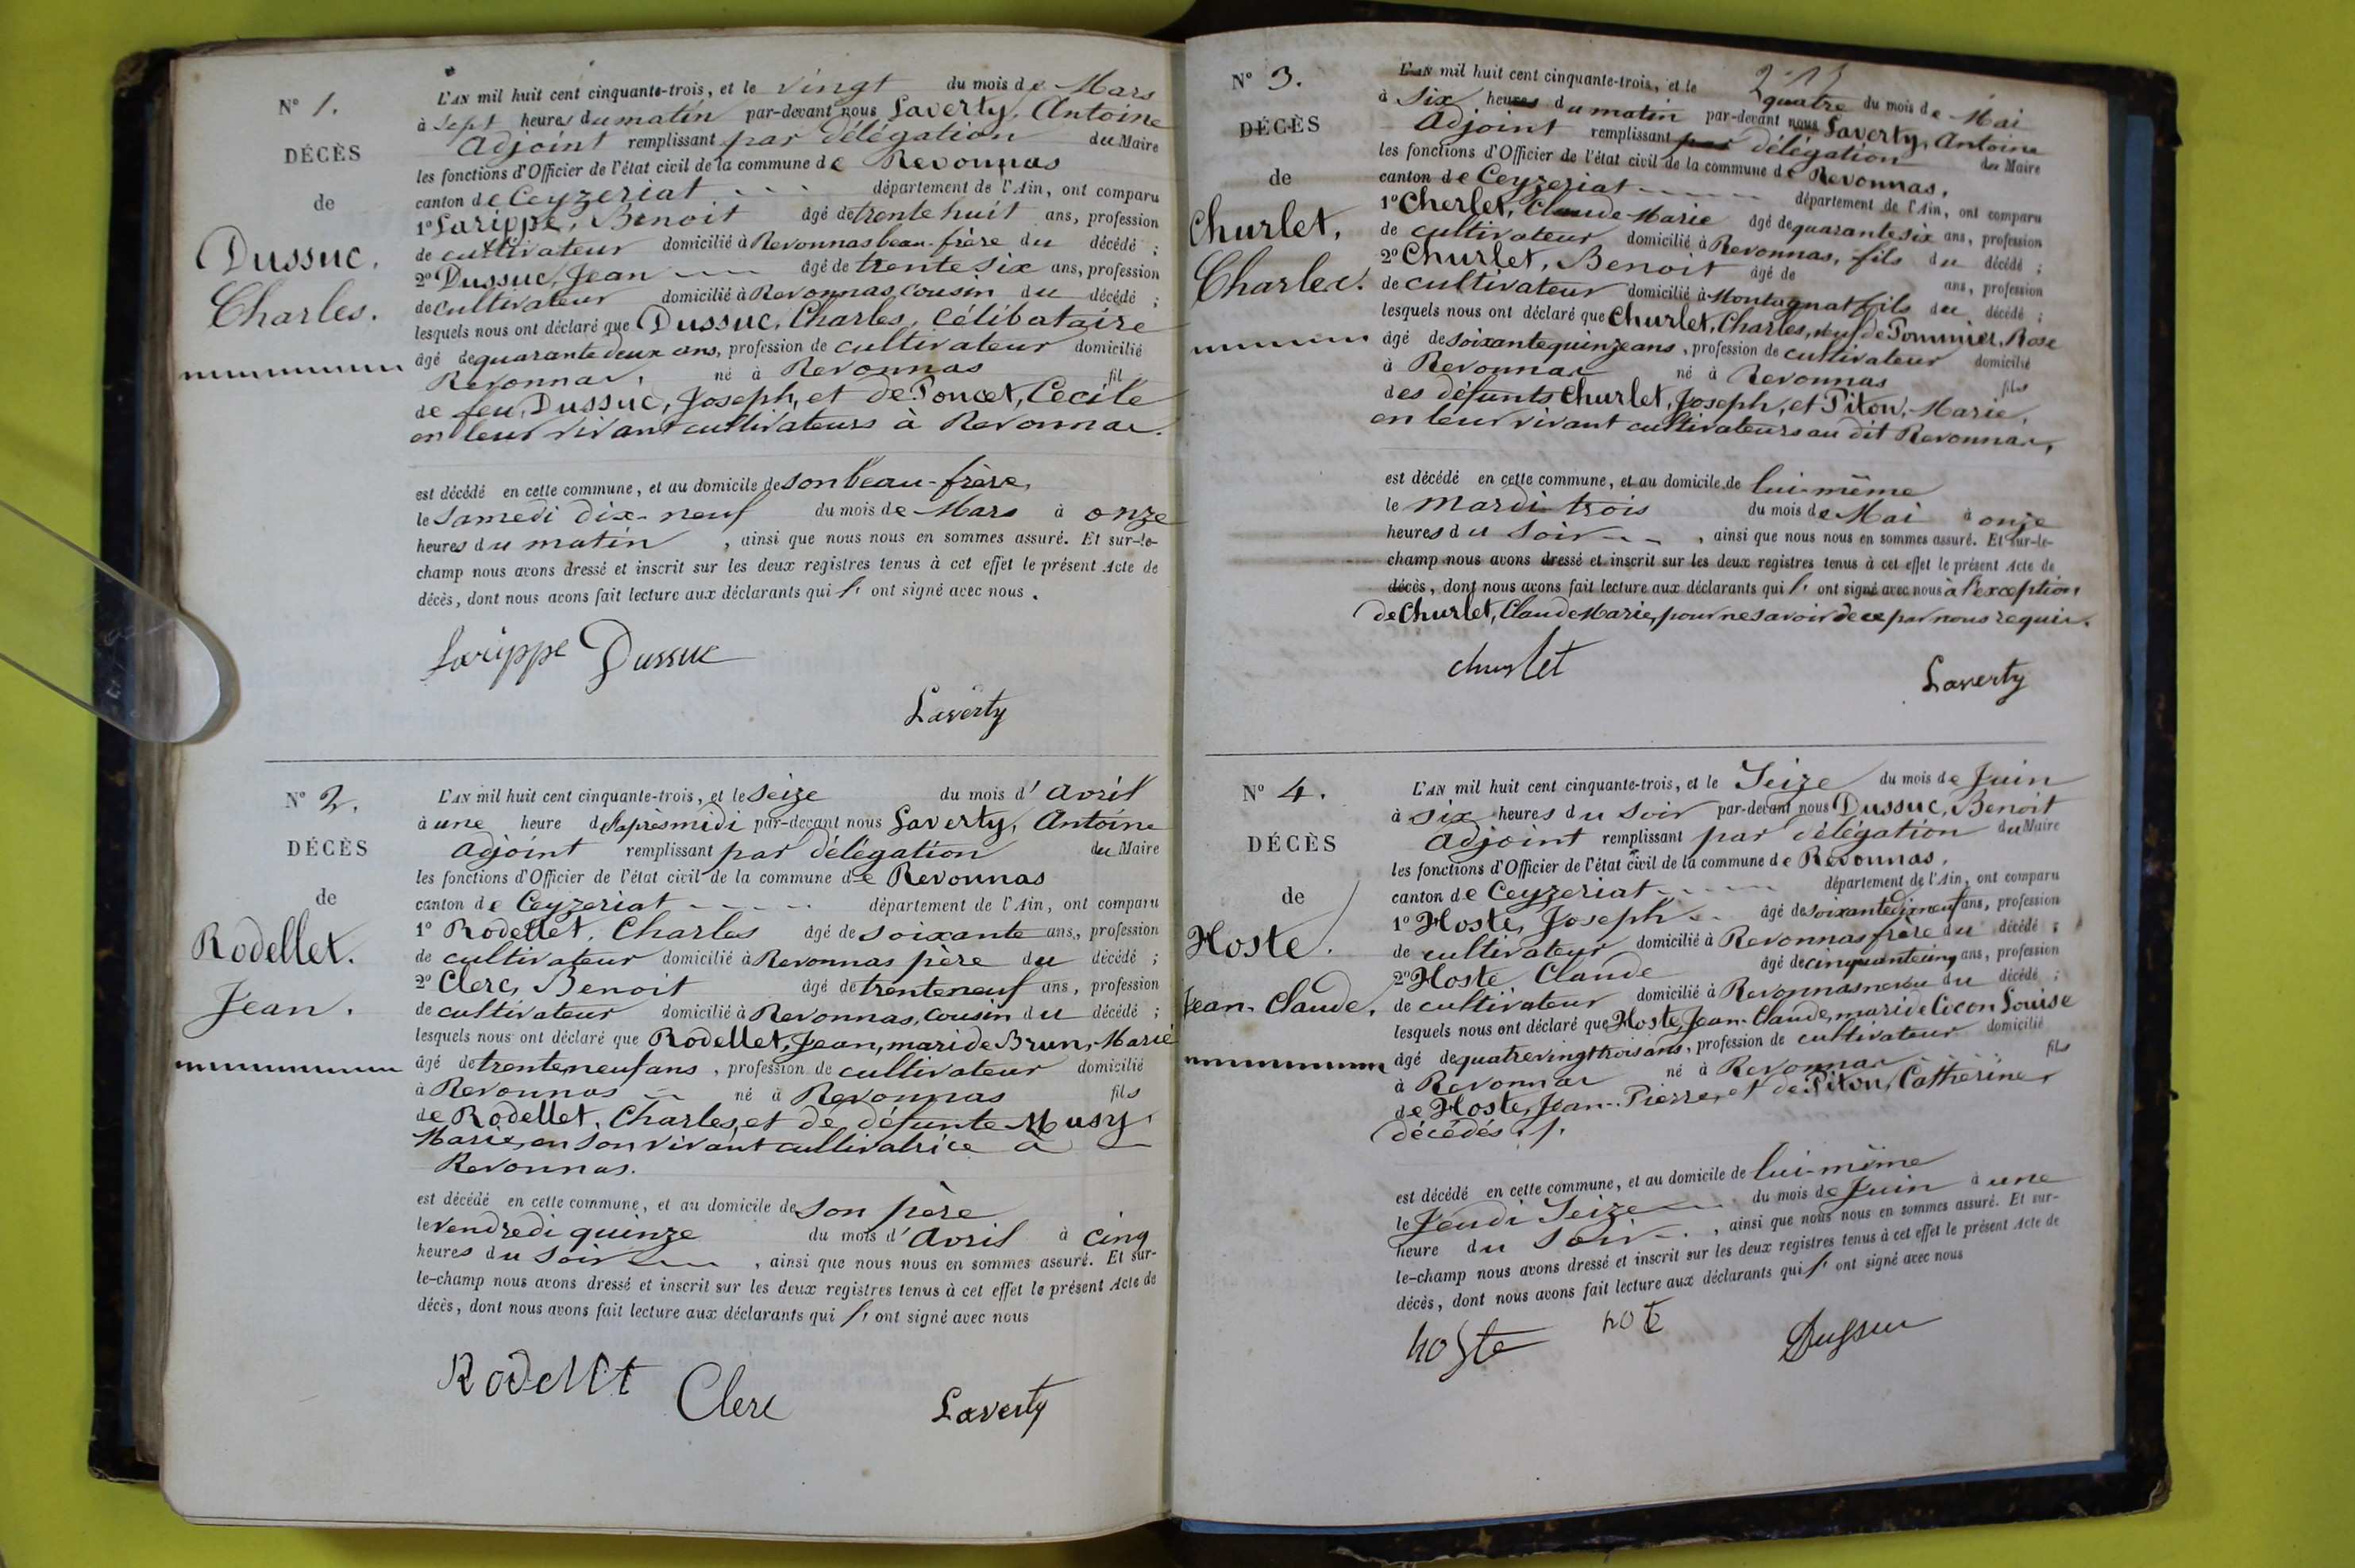 N° 1.
DÉCÈS
de
Dussuc.
Charles.
L'AN mil huit cent cinquante-trois, et le vingt du mois de Mars
à sept heures du matin par-devant nous Laverty, Antoine
Adjoint remplissant par délégation du Maire
les fonctions d'Officier de l'état civil de la commune de Revonnas
canton de Ceyzeriat département de l'Ain, ont comparu
1° Larippe, Benoit âgé de trente huit ans, profession
de cultivateur domicilié à Revonnas beau-frère du décédé ;
2° Dussuc, Jean âgé de trente six ans, profession
de cultivateur domicilié à Revonnas, cousin du décédé ;
lesquels nous ont déclaré que Dussuc, Charles, célibataire
âgé de quarante deux ans, profession de cultivateur domicilié
Revonnas, né à Revonnas fil
de feu, Dussuc, Joseph, et de Poncet, Cécile
en leur vivant cultivateurs à Revonnas.
est décédé en cette commune, et au domicile de son beau-frère,
le Samedi dix-neuf du mois de Mars à onze
heures du matin, ainsi que nous nous en sommes assuré. Et sur-le-
champ nous avons dressé et inscrit sur les deux registres tenus à cet effet le présent Acte de
décès, dont nous avons fait lecture aux déclarants qui l' ont signé avec nous.
Larippe Dussuc
Laverty
N° 2.
DÉCÈS
de
Rodellet.
Jean.
L'AN mil huit cent cinquante-trois, et le seize du mois d'avril
à une heure d l'après midi par-devant nous Laverty, Antoine
Adjoint remplissant par délégation du Maire
les fonctions d'Officier de l'état civil de la commune de Revonnas
canton de Ceyzeriat département de l'Ain, ont comparu
1° Rodellet, Charles âgé de soixante ans, profession
de cultivateur domicilié à Revonnas père du décédé ;
2° Clerc, Benoit âgé de trente neuf ans, profession
de cultivateur domicilié à Revonnas, cousin du décédé ;
lesquels nous ont déclaré que Rodellet, Jean, mari de Brun, Marie
âgé de trente neuf ans, profession de cultivateur domicilié
à Revonnas né à Revonnas fils
de Rodellet, Charles, et de défunte Musy
Marie, en son vivant cultivatrice à
Revonnas.
est décédé en cette commune, et au domicile de son père
le vendredi quinze du mois d'avril à cinq
heures du soir, ainsi que nous nous en sommes assuré. Et sur-
le-champ nous avons dressé et inscrit sur les deux registres tenus à cet effet le présent Acte de
décès, dont nous avons fait lecture aux déclarants qui l' ont signé avec nous
Rodellet Clerc Laverty
N° 3.
DÉCÈS
de
Churlet,
Charles.
L'AN mil huit cent cinquante-trois, et le quatre du mois de Mai
à six heures du matin par-devant nous Laverty, Antoine
Adjoint remplissant par délégation du Maire
les fonctions d'Officier de l'état civil de la commune de Revonnas,
canton de Ceyzeriat département de l'Ain, ont comparu
1° Cherlet, Claude-Marie âgé de quarante six ans, profession
de cultivateur domicilié à Revonnas, fils du décédé ;
2° Churlet, Benoit âgé de ans, profession
de cultivateur domicilié à Montagnat fils du décédé ;
lesquels nous ont déclaré que Churlet, Charles, veuf de Pommier, Rose
âgé de soixante quinze ans, profession de cultivateur domicilié
à Revonnas né à Revonnas fils
des défunts Churlet, Joseph, et Piton, Marie,
en leur vivant cultivateurs au dit Revonnas,
est décédé en cette commune, et au domicile de lui-même
le Mardi trois du mois de Mai à onze
heures du soir, ainsi que nous nous en sommes assuré. Et sur-le-
champ nous avons dressé et inscrit sur les deux registres tenus à cet effet le présent Acte de
décès, dont nous avons fait lecture aux déclarants qui l' ont signé avec nous à l'exception
de Churlet, Claude Marie, pour ne savoir de ce par nous requis.
churlet Laverty
N° 4.
DÉCÈS
de
Hoste.
Jean-Claude.
L'AN mil huit cent cinquante-trois, et le Seize du mois de Juin
à six heures du soir par-devant nous Dussuc, Benoit
Adjoint remplissant par délégation du Maire
les fonctions d'Officier de l'état civil de la commune de Revonnas,
canton de Ceyzeriat département de l'Ain, ont comparu
1° Hoste, Joseph âgé de soixante dix neuf ans, profession
de cultivateur domicilié à Revonnas frère du décédé ;
2° Hoste Claude âgé de cinquante cinq ans, profession
de cultivateur domicilié à Revonnas neveu du décédé ;
lesquels nous ont déclaré que Hoste, Jean-Claude, mari de Cocon Louise
âgé de quatre vingt trois ans, profession de cultivateur domicilié
à Revonnas né à Revonnas fils
de Hoste, Jean-Pierre, et de Piton, Catherine,
décédés.
est décédé en cette commune, et au domicile de lui-même
le Jeudi Seize du mois de Juin à une
heure du soir, ainsi que nous nous en sommes assuré. Et sur-
le-champ nous avons dressé et inscrit sur les deux registres tenus à cet effet le présent Acte de
décès, dont nous avons fait lecture aux déclarants qui l' ont signé avec nous
hoste hote Dussuc